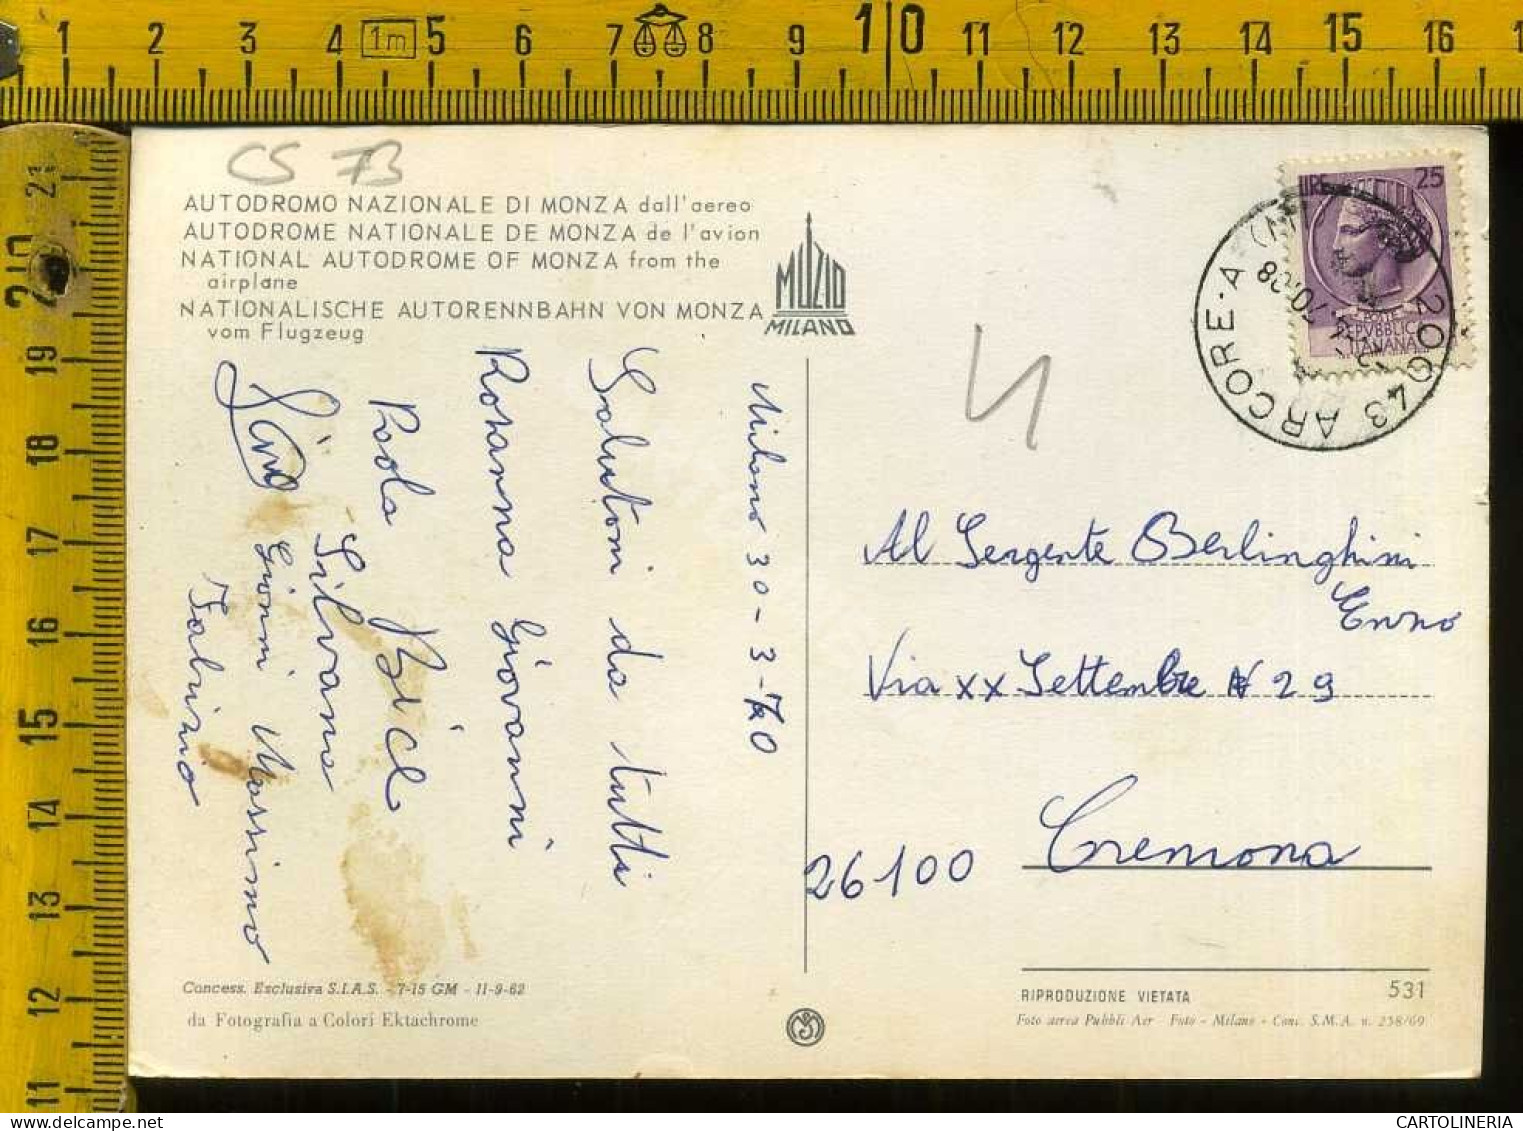 1 2 3 4 1m 5 6 7 8 9 10 11 12 13 14 15 16
21 20 19 18 17 16 15 14 13 12 11
CS 73
AUTODROMO NAZIONALE DI MONZA dall'aereo
AUTODROME NATIONALE DE MONZA de l'avion
NATIONAL AUTODROME OF MONZA from the
airplane
NATIONALISCHE AUTORENNBAHN VON MONZA
vom Flugzeug
MUZIO
MILANO
LIRE 25
POSTE
REPVBBLICA
ITALIANA
20043 ARCORE-A (MI)
Milano 30-3-70
Salutoni da tutti
Rosanna Giovanni
Paola
Silvana
Gino
Gianni Massimo
Fabrizio
Al Sergente Berlinghini
Enno
Via XX Settembre N 29
26100 Cremona
Concess. Esclusiva S.I.A.S. - 7-15 GM - 11-9-62
da Fotografia a Colori Ektachrome
RIPRODUZIONE VIETATA 531
Foto aerea Pubbli Aer - Foto - Milano - Conc. S.M.A. n. 258/69
CARTOLINERIA